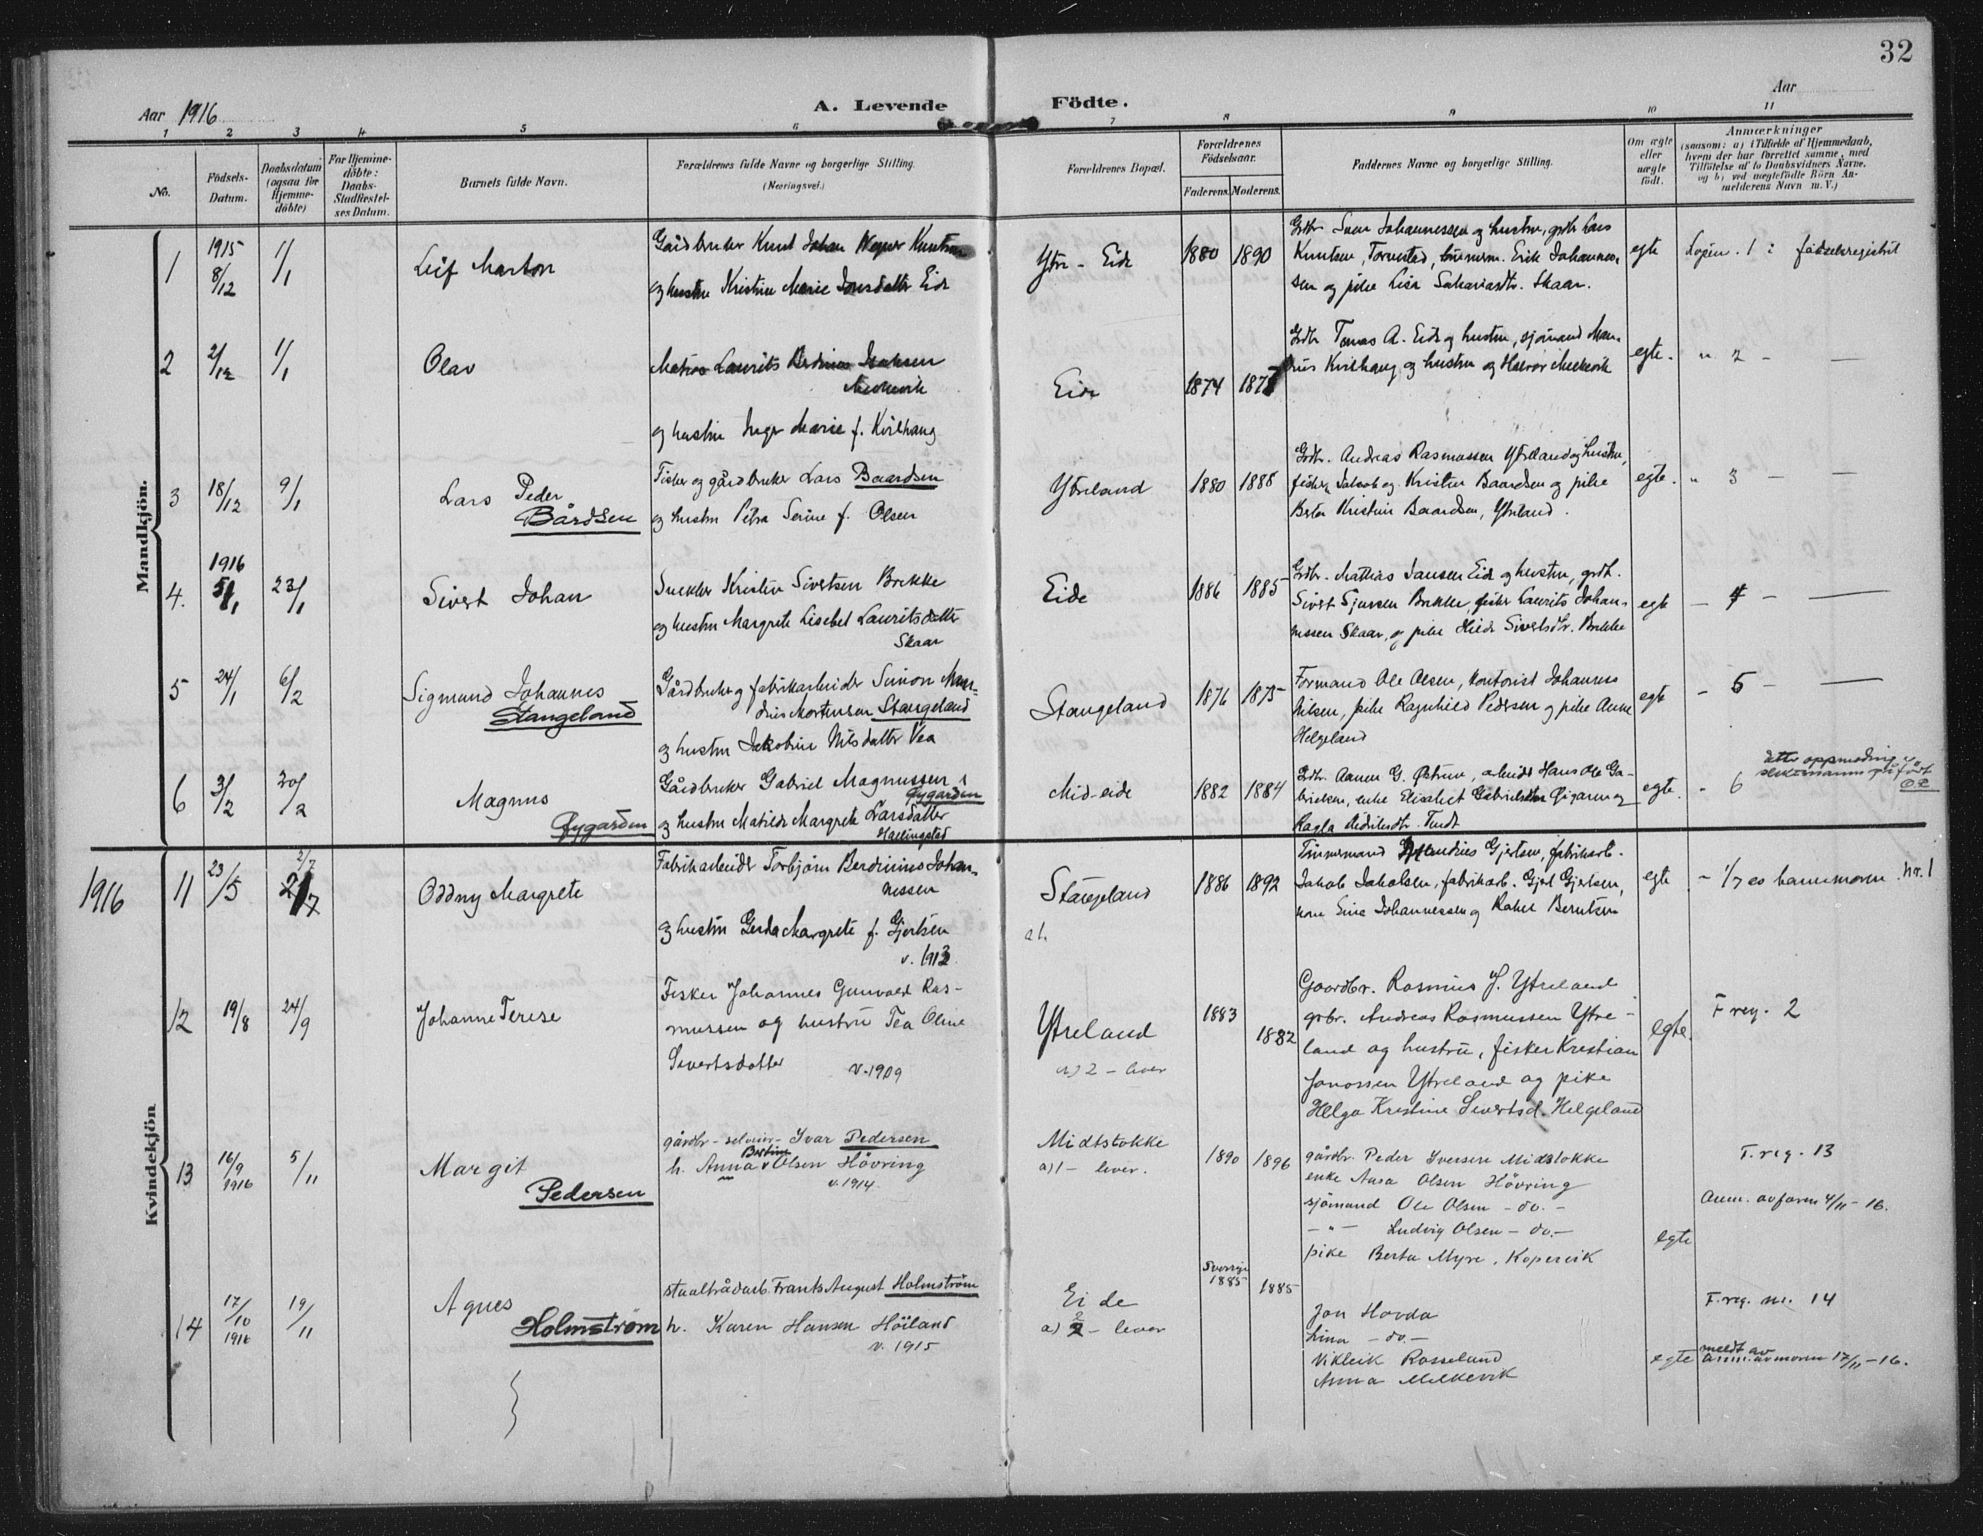 32
Aar 1916
A. Levende Födte.
Aar
1 2 3 4 5 6 7 8 9 10 11
No.
Födsels-Datum.
Daabsdatum (ogsaa for Hjemme-döbte)
For Hjemme-döbte: Daabs-Stadfæstel-ses Datum.
Barnets fulde Navn.
Forældrenes fulde Navne og borgerlige Stilling.
(Næringsvei.)
Forældrenes Bopæl.
Forældrenes Födselsaar.
Faderens. Moderens.
Faddernes Navne og borgerlige Stilling.
Om ægte eller uægte födt.
Anmærkninger
(saasom: a) i Tilfælde af Hjemmedaab, hvem der har forrettet samme, med Tilföielse af to Daabsvidners Navne. og b) ved uægtefödte Börn An-melderens Navn m. V.)
Mandkjön.
1 1915 8/12 1/1 Leif Marton
Gårdbruker Knut Johan Knutsen
og hustru Kristine Marie Jonsdatter Eide
Ytre-Eide 1880 1890
Grdbr. Sven Johannessen og hustru, grdb. Lars
Knutsen, Torvestad, tömmerm. Erik Johannes-
sen og pike Lisa Sakariasdtr. Skaar.
egte Lopen. 1 i födselsregistret
2 2/12 1/1 Olav
Matros Laurits Isaksen
Melkevik
og hustru Inger Marie f. Kvilhaug
Eide 1874 1875
Grdb. Tomas A. Eide og hustru, sjömand Man-
nius Kvilhaug og hustru og Halvor Melkevik
egte. " 2 - —
3 18/12 9/1 Lars Peder
Bårdsen
Fisker og gårdbruker Lars Baardsen
og hustru Petra Serine f. Olsen
Ytreland 1880 1885
Grdb. Andreas Rasmussen Ytreland og hustru,
fisker Jakob og Kristen Baardsen og pike
Berta Kristine Baardsen, Ytreland.
egte. " 3 - —
4. 1916 5/1 23/1 Sivert Johan
Snekker Kristen Sivertsen Brekke
og hustru Margrete Lisebet Lauritsdatter
Skaar
Eide 1886 1885
Grdbr. Mathias Jansen Eide og hustru, grdb.
Sivert Sjursen Brekke, fisker Laurits Johan-
nessen Skaar, og pike Hilda Sivertsdtr. Brekke
egte - 4 - —
5 24/1 6/2 Sigmund Johannes
Stangeland
Gårdbruker og fabrikarbeider Simon Man-
drius Mortensen Stangeland
og hustru Jakobine Nilsdatter Vea
Stangeland 1876 1875
Formand Ole Olsen, kontorist Johannes
Nilsen, pike Ragnhild Pedersen og pike Anne
Helgeland
egte - 5 - —
6 3/2 20/2 Magnus
Öygarden
Gårdbruker Gabriel Magnussen
Öygarden
og hustru Matilde Margrete Larsdatter
Hallingstad
Mid-eide 1882 1884
Grdb. Aamen G. Östrem, arbeider Hans Ole Ga-
brielsen, enke Elisabet Gabrielsen Öigaren og
Ragla
egte. - 6
etter oppmoding
Kvindekjön
1916 11 23/5 2/7 Oddny Margrete
Fabrikarbeider Torbjörn Berdinius Johan-
nessen
og hustru Gerda Margrete f. Gjertsen
v. 1913
Stangeland 1886 1892
a1.
Tömmermand Gjertsen, fabrikarb.
Jakob Jakobsen, fabrikarb. Gjert Gjertsen,
kone Eine Johannessen og Rakel Berntsen
egte - 1/7 barnemoren. nr. 1
12 19/8 24/9 Johanne Terese
Fisker Johannes Gunvald Ras-
mussen og hustru Tea Oline
Sivertsdatter v. 1909
Ytreland
a) 2 - lever
1883 1882
Gaardbr. Rasmus J. Ytreland
grbr. Andreas Rasmussen Ytre-
land og hustru, fisker Kristian
Jonassen Ytreland og pike
Helga Kristine Sivertsd. Helgeland
egte. F reg. 2
13 16/9 1916 5/11 Margit
Pedersen
gårdbr - selveier - Ivar Pedersen
h. Anna Bertine Olsen Hövring
v. 1914
Midtstokke
a) 1 - lever.
1890 1896
gårdbr. Peder Iversen Midstokke
enke Aasa Olsen Hövring
sjömand Ole Olsen - do. -
- " - Ludvig Olsen - do. -
pike Berta Myre, Kopervik
egte
F. reg. 13
Anm. av faren 4/11 - 16.
14 17/10 1916 19/11 Agnes
Holmström
staaltrådarb. Frants August Holmström
h. Karen Hansen Höiland
v. 1915
Eide
a) 2 - lever
Sverige 1885 1885
Jon Hovda
Lina - do. -
Vikleik Rosseland
Anna Melkevik
egte
F. reg. nr. 14
meldt av
anm. av moren 17/11 - 16.